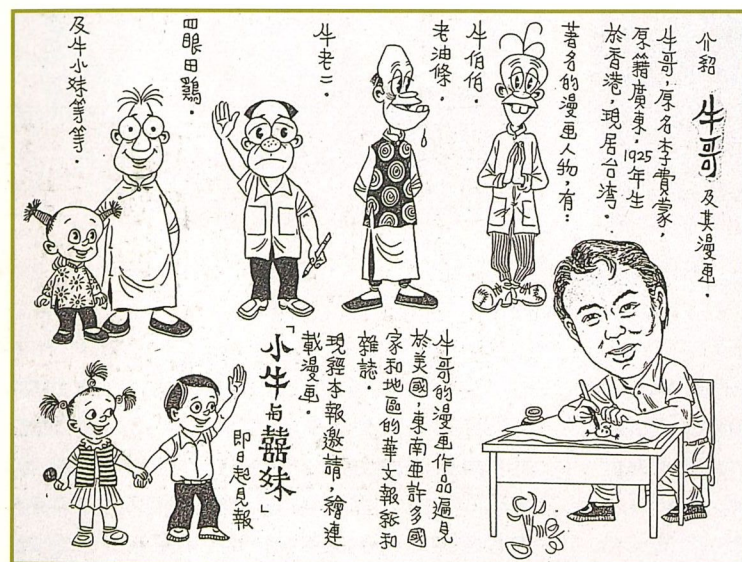 介紹 牛哥 及其漫画.
牛哥,原名李費蒙,
原籍廣東,1925年生
於香港,現居台湾。
著名的漫画人物,有:
牛伯伯.
老油條.
牛老二.
四眼田鷄.
及牛小妹等等.
牛哥的漫画作品遍見
於美國,東南亜許多國
家和地區的華文報紙和
雜誌.
現經本報邀請,繪連
載漫画.
「小牛与囍妹」
即日起見報